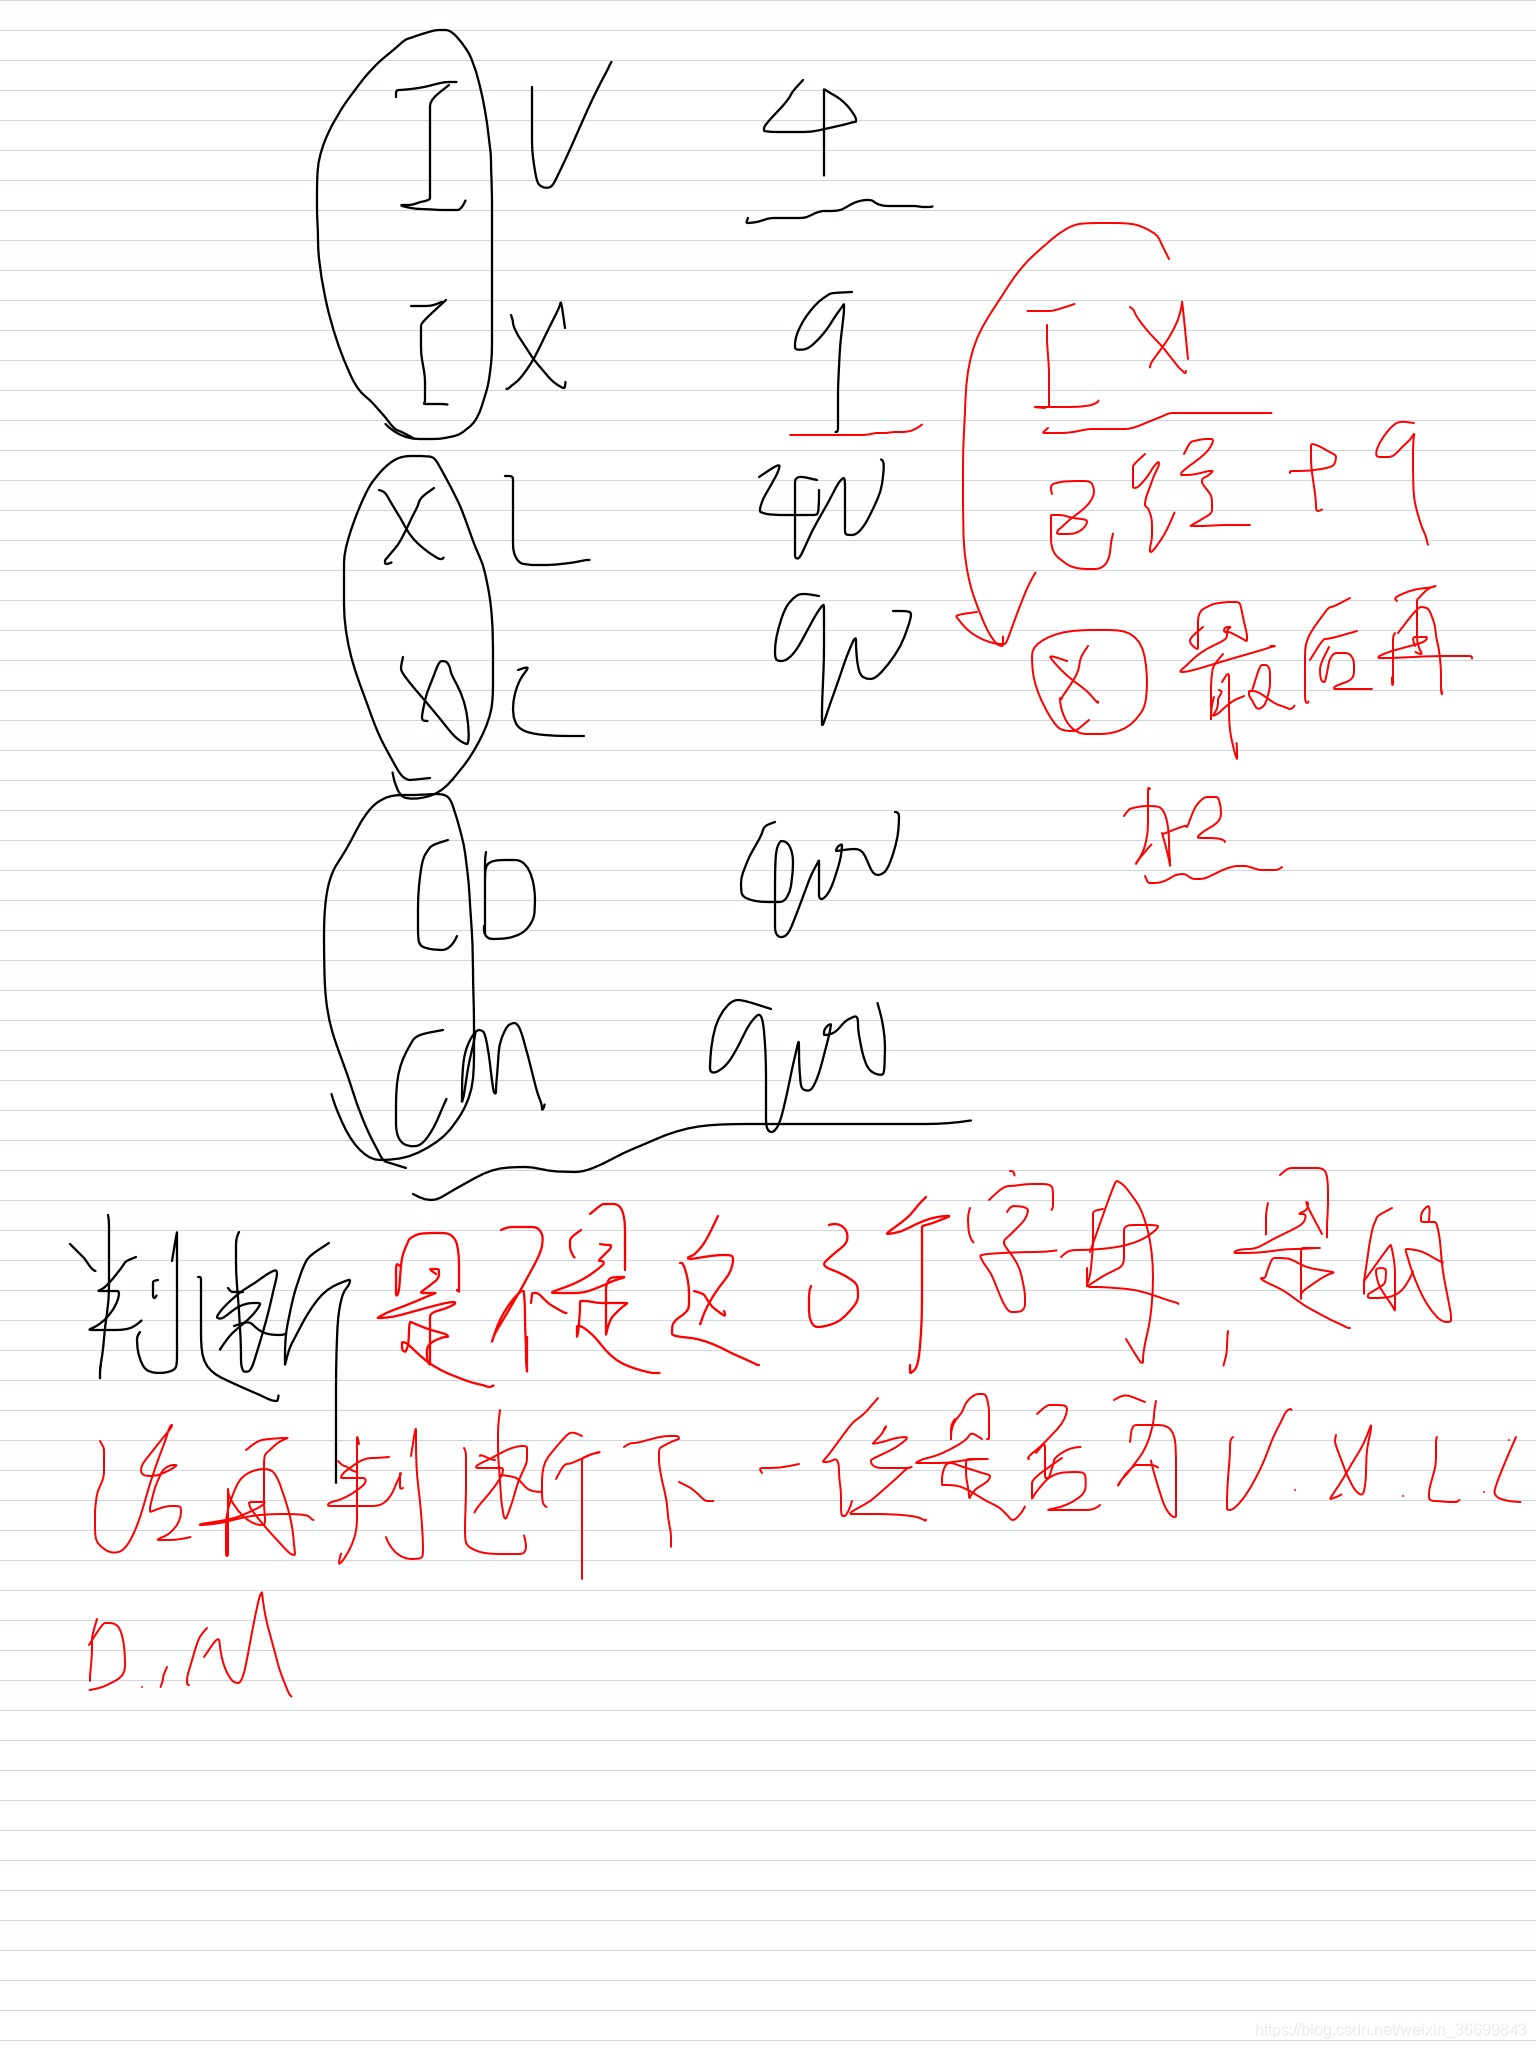 IV 4
IX 9
XL 40
XC 90
CD 400
CM 900
IX
已经+9
X 最后再
加
判断是不是这3个字母,是的
话再判断下一位是否为V.X.L.C
D.,M
https://blog.csdn.net/weixin_36699843